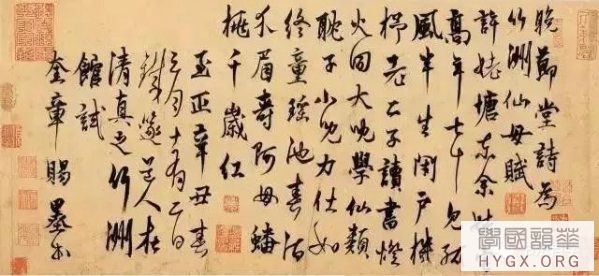 晚節堂詩為
竹洲仙母賦
許姥塘東余
高年七十見孤
風半生閉戶機
杼老二子讀書燈
火同大兒學仙類
耽子小兒力仕如
終童瑤池春酒
介眉壽阿母蟠
桃千歲紅
至正辛丑春
三月十有二日
鐵篴道人在
清真之竹洲
館試
奎章賜墨書
學國韻華
HYGX.ORG